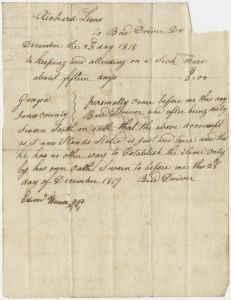 Richard Lions
To Bird Driver Dr
December the 23d day 1818
to keeping and attending on a Sick Mare
about fifteen days $8.00
Georgia
Jones County
personally came before me this day
Bird Driver and after being duly
Sworn Saith on oath that the above account
as it now Stands Stated is Just and true and that
he has no other way to Establish the Same only
by his own oath Sworn to before me this 28th
day of December 1819 Bird Driver
Edward